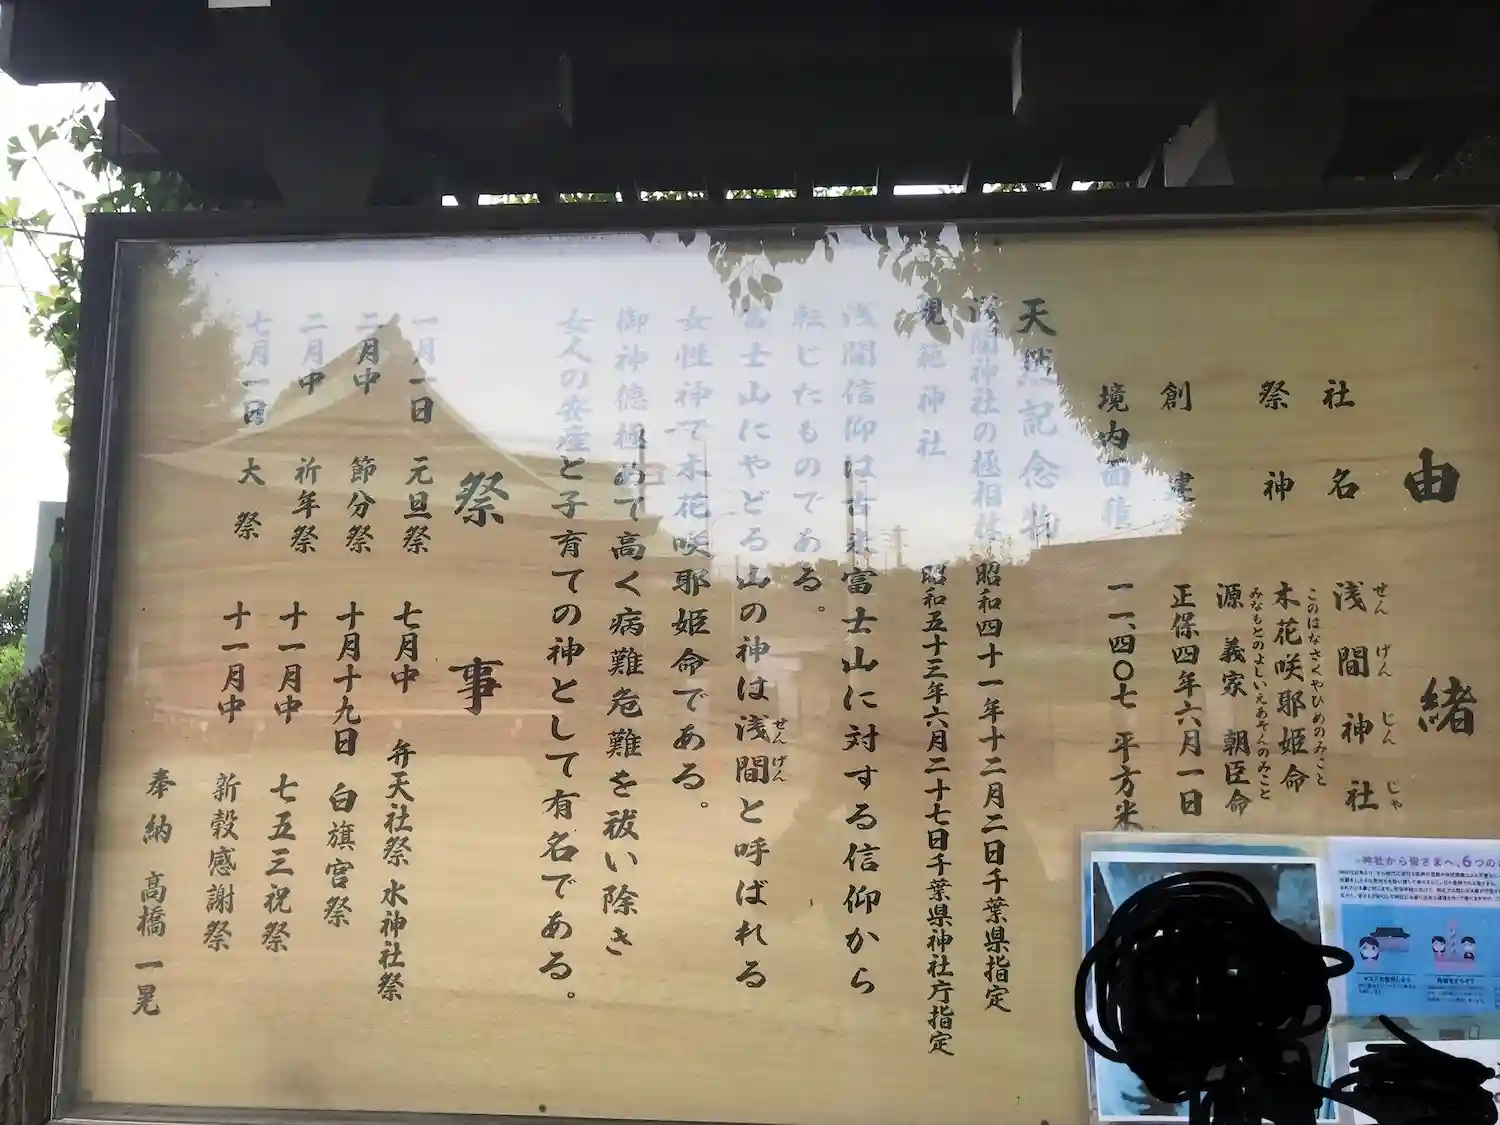 由緒
社名 浅間神社
せんげんじんじゃ
祭神 木花咲耶姫命
このはなさくやひめのみこと
源義家朝臣命
みなもとのよしいえあそんのみこと
創建 正保四年六月一日
境内面積 一一、四〇七平方米
天然記念物
浅間神社の極相林 昭和四十一年十二月二日千葉県指定
規範神社 昭和五十三年六月二十七日千葉県神社庁指定
浅間信仰は古来富士山に対する信仰から
転じたものである。
富士山にやどる山の神は浅間と呼ばれる
せんげん
女性神で木花咲耶姫命である。
御神徳極めて高く病難危難を祓い除き
女人の安産と子育ての神として有名である。
祭事
一月一日 元旦祭
二月中 節分祭
二月中 祈年祭
七月一日 大祭
七月中 弁天社祭 水神社祭
十月十九日 白旗宮祭
十一月中 七五三祝祭
十一月中 新穀感謝祭
奉納 高橋一晃
神社から皆さまへ、6つの